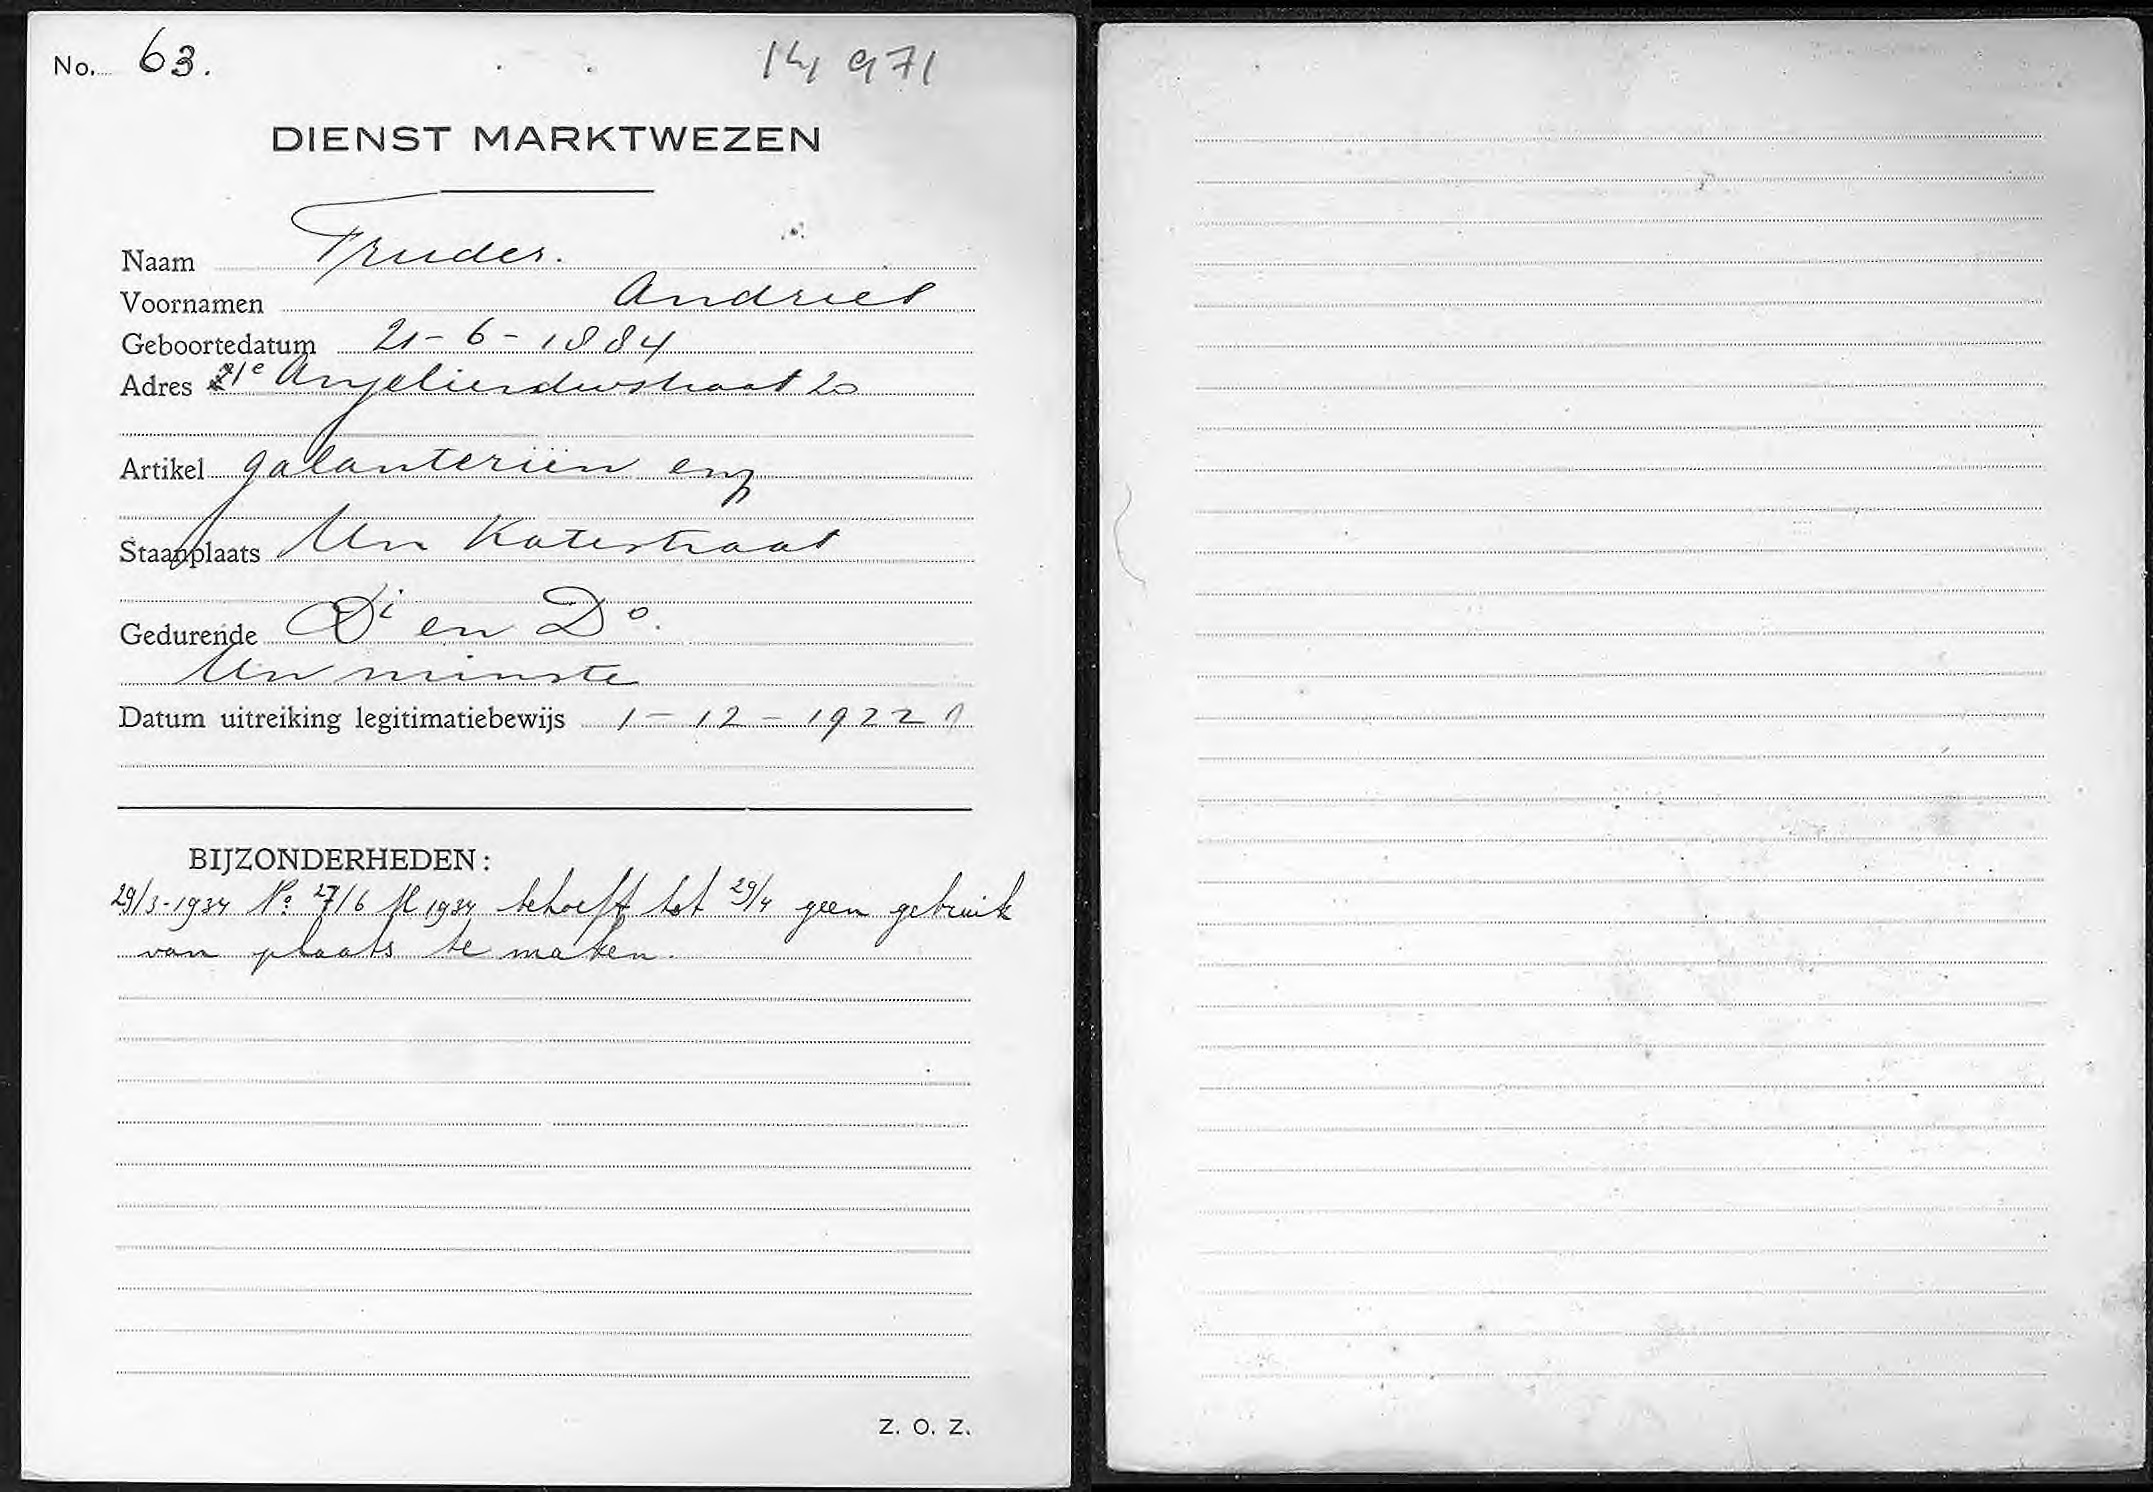 No. 63.
14971
DIENST MARKTWEZEN
Naam Truder.
Voornamen Andries
Geboortedatum 21-6-1884
Adres 1e Anjeliersdwstraat 20
Artikel galanteriën enz
Staanplaats Ten Katestraat
Gedurende Di en Do.
Ten minste
Datum uitreiking legitimatiebewijs 1-12-1922
BIJZONDERHEDEN:
29/3-1934 No 27/6 M 1934 behoeft tot 29/4 geen gebruik
van plaats te maken.
Z. O. Z.